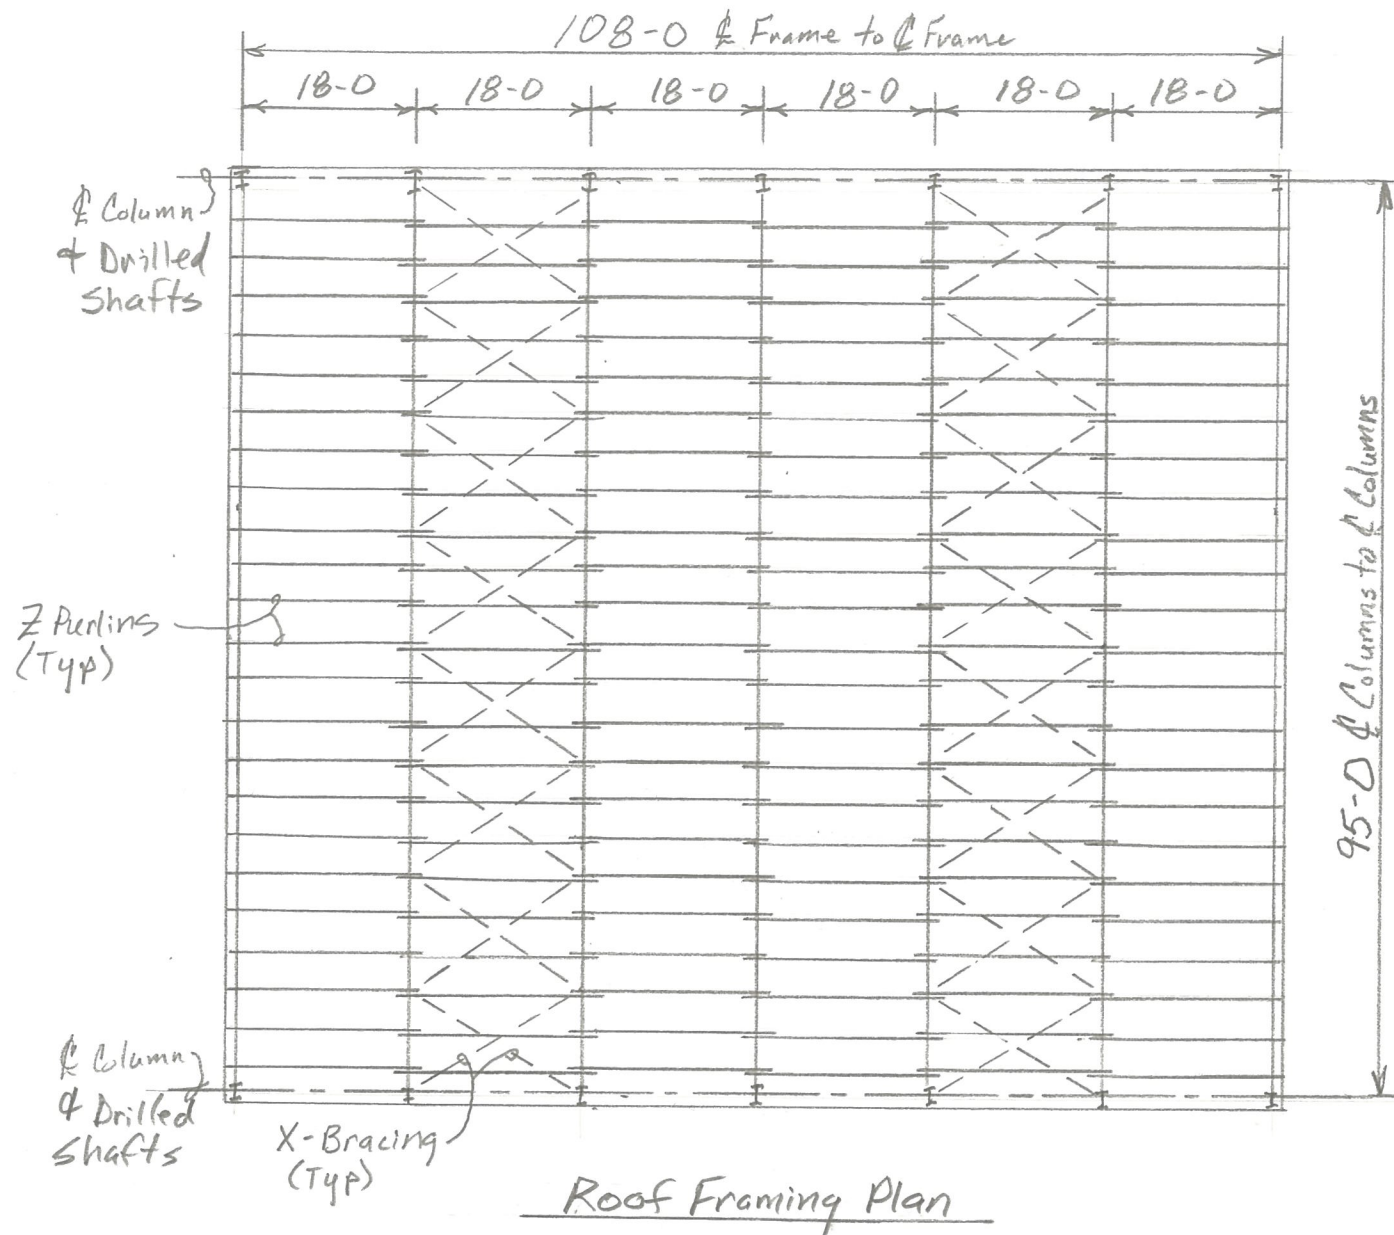 108-0 ℄ Frame to ℄ Frame
18-0 18-0 18-0 18-0 18-0 18-0
℄ Column
& Drilled
Shafts
95-0 ℄ Columns to ℄ Columns
Z Purlins
(Typ)
℄ Column
& Drilled
Shafts
X-Bracing
(Typ)
Roof Framing Plan